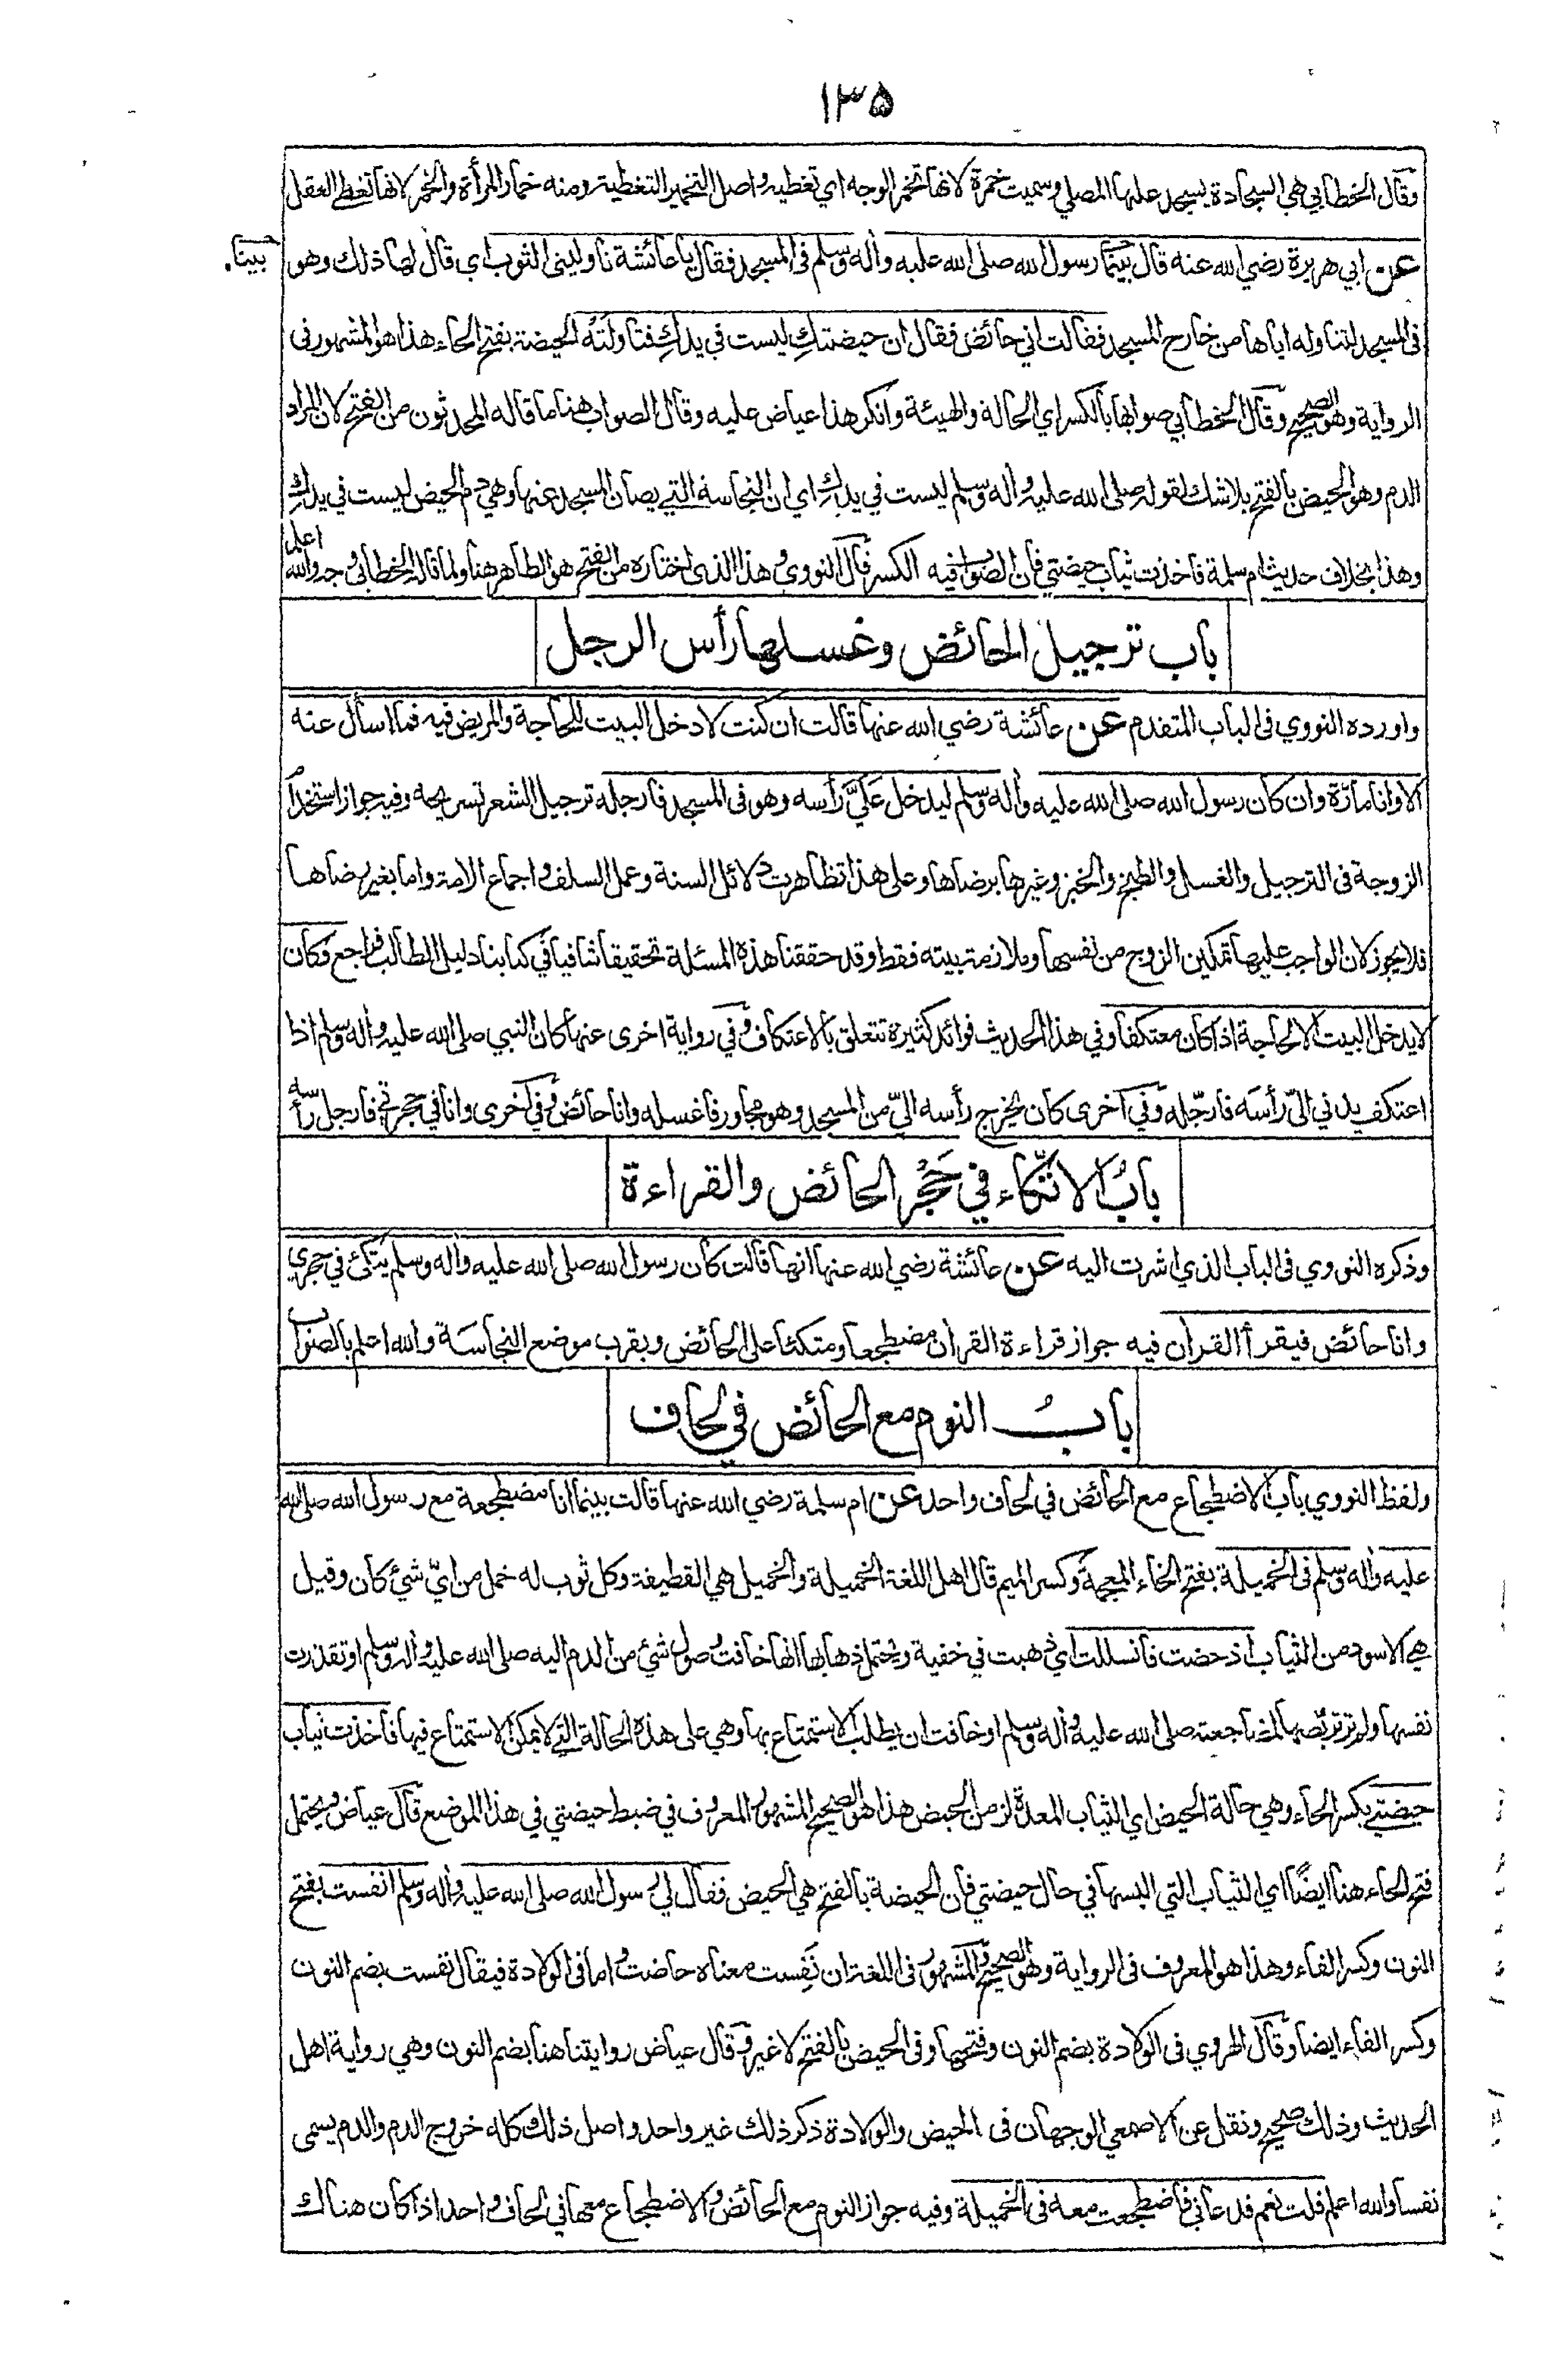 ١٣٥
وقال الخطابي هي السجادة يسجد عليها المصلي وسميت خمرة لانها تخمر الوجه اي تغطيه واصل التخمير التغطية ومنه خمار المرأة والخمر لانها تغطى العقل
عن ابي هريرة رضي الله عنه قال بينما رسول الله صلى الله عليه وأله وسلم فى المسجد فقال يا عائشة ناوليني الثوب اي قال لها ذلك وهو
بينا.
فى المسجد لتناوله اياها من خارج المسجد فقالت اني حائض فقال ان حيضتكِ ليست في يدكِ فناولته الحيضة بفتح الحاء هذا هو المشهور فى
الرواية وهو الصحيح وقال الخطابي صوابها بالكسر اي الحالة والهيئة وانكر هذا عياض عليه وقال الصواب هنا ما قاله المحدثون من الفتح لان المراد
الدم وهو الحيض بالفتح بلا شك لقوله صلى الله عليه وأله وسلم ليست في يدكِ اي ان النجاسة التي يصان المسجد عنها وهي دم الحيض ليست في يدكِ
وهذا بخلاف حديث ام سلمة فاخذت ثياب حيضتي فان الصواب فيه الكسر قال النووي وهذا الذي اختاره من الفتح هو الظاهر هنا ولما قاله الخطابي وجه والله اعلم
باب ترجيل الحائض وغسلها رأس الرجل
واورده النووي فى الباب المتقدم عن عائشة رضي الله عنها قالت ان كنت لادخل البيت للحاجة والمريض فيه فما اسأل عنه
الا وانا مارّة وان كان رسول الله صلى الله عليه وأله وسلم ليدخل عَلَيَّ رأسه وهو فى المسجد فارجله ترجيل الشعر تسريحه وفيه جواز استخدام
الزوجة فى الترجيل والغسل والطبخ والخبز وغيرها برضاها وعلى هذا تظاهرت دلائل السنة وعمل السلف واجماع الامة واما بغير رضاها
فلا يجوز لان الواجب عليها تمكين الزوج من نفسها وملازمة بيته فقط وقد حققنا هذه المسئلة تحقيقا شافيا في كتابنا دليل الطالب فراجع فكان
لا يدخل البيت الا لحاجة اذا كان معتكفا وفي هذا الحديث فوائد كثيرة تتعلق بالاعتكاف وفي رواية اخرى عنها كان النبي صلى الله عليه وأله وسلم اذا
اعتكف يدني اليّ رأسَه فارجّله وفي اخرى كان يخرج رأسه اليّ من المسجد وهو مجاور فاغسله وانا حائض وفي اخرى وانا في حجرتي فارجل رأسه
بابُ الاتّكاء في حَجْر الحائض والقراءة
وذكره النووي فى الباب الذي اشرت اليه عن عائشة رضي الله عنها انها قالت كان رسول الله صلى الله عليه وأله وسلم يتكئ في حجري
وانا حائض فيقرأ القرأن فيه جواز قراءة القرأن مضطجعا ومتكئا على الحائض وبقرب موضع النجاسَة والله اعلم بالصواب
بابُ النوم مع الحائض في لحاف
ولفظ النووي باب الاضطجاع مع الحائض في لحاف واحد عن ام سلمة رضي الله عنها قالت بينما انا مضطجعة مع رسول الله صلى الله
عليه وأله وسلم فى الخميلة بفتح الخاء المعجمة وكسر الميم قال اهل اللغة الخميلة والخميل هي القطيفة وكل ثوب له خمل من ايّ شئ كان وقيل
هي الاسود من الثياب اذ حضت فانسللت اي ذهبت في خفية ويحتمل ذهابها انها خافت وصول شئ من الدم اليه صلى الله عليه وأله وسلم او تقذرت
نفسها ولم تربّصها لمضاجعته صلى الله عليه وأله وسلم او خافت ان يطلب الاستمتاع بها وهي على هذه الحالة التي لا يمكن الاستمتاع فيها فاخذت ثياب
حيضتي بكسر الحاء وهي حالة الحيض اي الثياب المعدة لزمن الحيض هذا هو الصحيح المشهور المعروف في ضبط حيضتي في هذا الموضع قال عياض ويحتمل
فتح الحاء هنا ايضًا اي الثياب التي البسها في حال حيضتي فان الحيضة بالفتح هي الحيض فقال لي رسول الله صلى الله عليه وأله وسلم أنفست بفتح
النون وكسر الفاء وهذا هو المعروف فى الرواية وهو الصحيح والمشهور فى اللغة ان نَفِست معناه حاضت واما فى الولادة فيقال نفست بضم النون
وكسر الفاء ايضا وقال الهروي فى الولادة بضم النون وفتحها وفى الحيض بالفتح لا غير وقال عياض روايتنا هنا بضم النون وهي رواية اهل
الحديث وذلك صحيح ونقل عن الاصمعي الوجهان فى الحيض والولادة ذكر ذلك غير واحد واصل ذلك كله خروج الدم والدم يسمى
نفسا والله اعلم قلت نعم فدعاني فاضطجعت معه فى الخميلة وفيه جواز النوم مع الحائض والاضطجاع معها في لحاف واحد اذا كان هناك